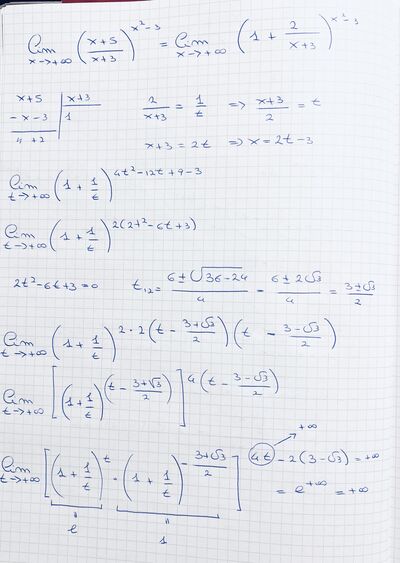 lim x→+∞ ((x+5)/(x+3))^(x²-3) = lim x→+∞ (1 + 2/(x+3))^(x²-3)
x+5 | x+3
-x-3 | 1
// +2
2/(x+3) = 1/t ⇒ (x+3)/2 = t
x+3 = 2t ⇒ x = 2t-3
lim t→+∞ (1 + 1/t)^(4t²-12t+9-3)
lim t→+∞ (1 + 1/t)^(2(2t²-6t+3))
2t²-6t+3=0 t₁₂ = (6±√(36-24))/4 = (6±2√3)/4 = (3±√3)/2
lim t→+∞ (1 + 1/t)^(2·2(t - (3+√3)/2)(t - (3-√3)/2))
lim t→+∞ [(1 + 1/t)^(t - (3+√3)/2)]^(4(t - (3-√3)/2))
+∞
lim t→+∞ [(1 + 1/t)^t · (1 + 1/t)^(-(3+√3)/2)]^(4t - 2(3-√3)) = +∞
= e^(+∞) = +∞
" "
e 1